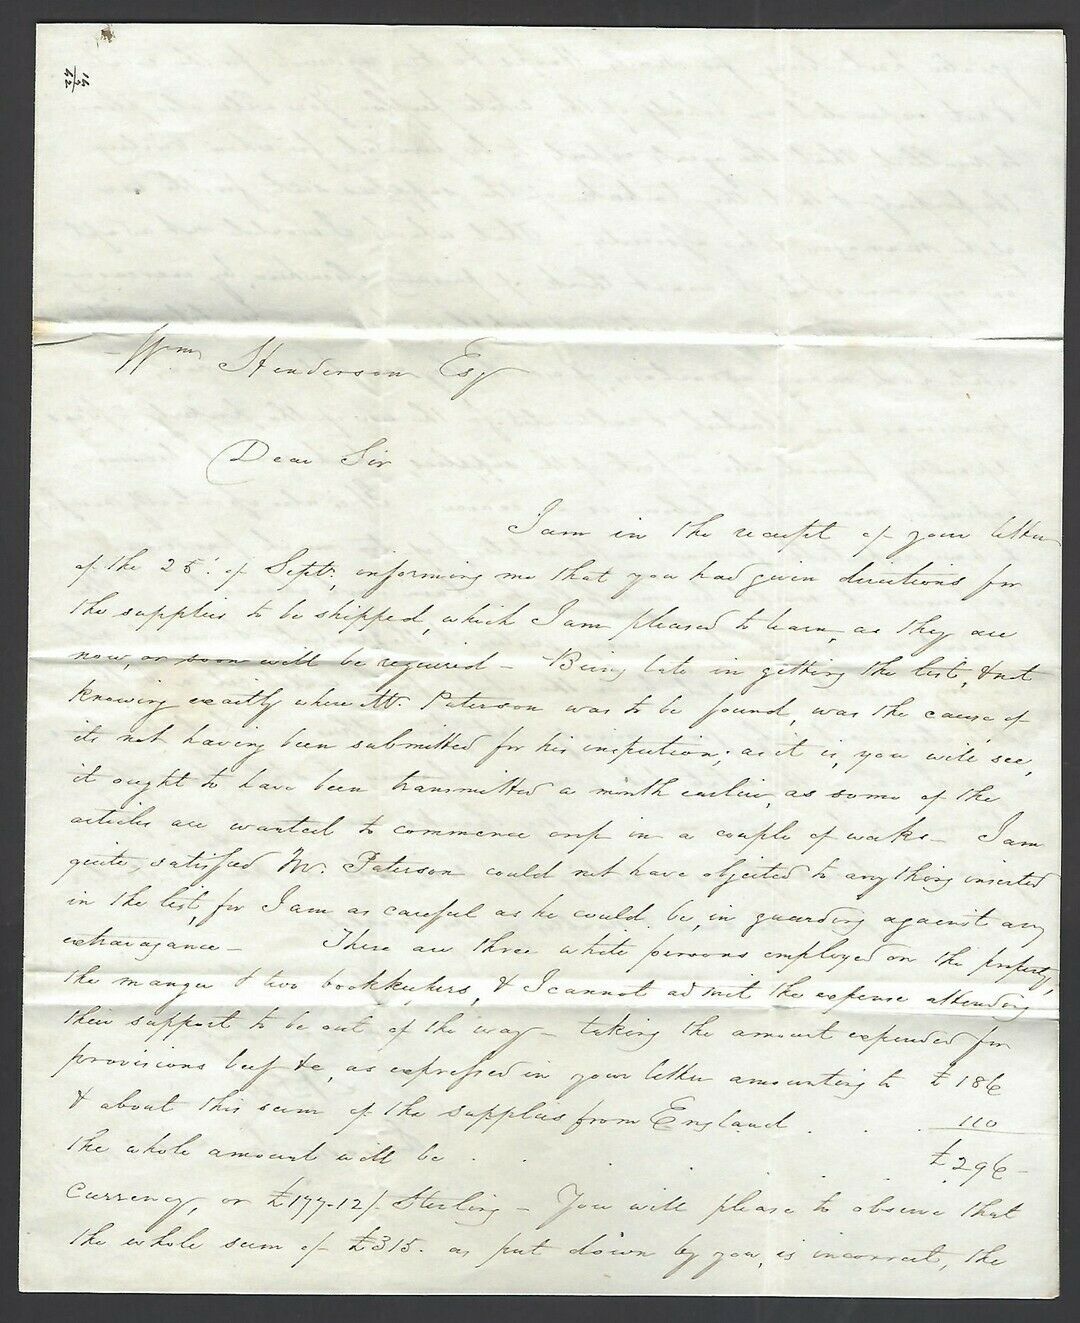 Wm Henderson Esqr
Dear Sir
I am in the receipt of your letter
of the 25t. of Septr, informing me that you had given directions for
the supplies to be shipped, which I am pleased to learn, as they are
now, or soon will be required - Being late in getting the list, & not
knowing exactly where Mr. Paterson was to be found, was the cause of
its not having been submitted for his inspection; as it is, you will see,
it ought to have been transmitted a month earlier, as some of the
articles are wanted to commence crop in a couple of weeks - I am
quite satisfied Mr. Paterson could not have objected to any thing inserted
in the list, for I am as careful as he could be, in guarding against any
extravagance - There are three white persons employed on the property,
the manger & two bookkeepers, & I cannot admit the expense attending
their support to be out of the way - taking the amount expended for
provisions beef &c, as expressed in your letter amounting to £186
& about this sum of the supplies from England . . . 110
the whole amount will be . . . . £296 -
Currency, or £177-12/ Sterling - You will please to observe that
the whole sum of £315. as put down by you, is incorrect, the